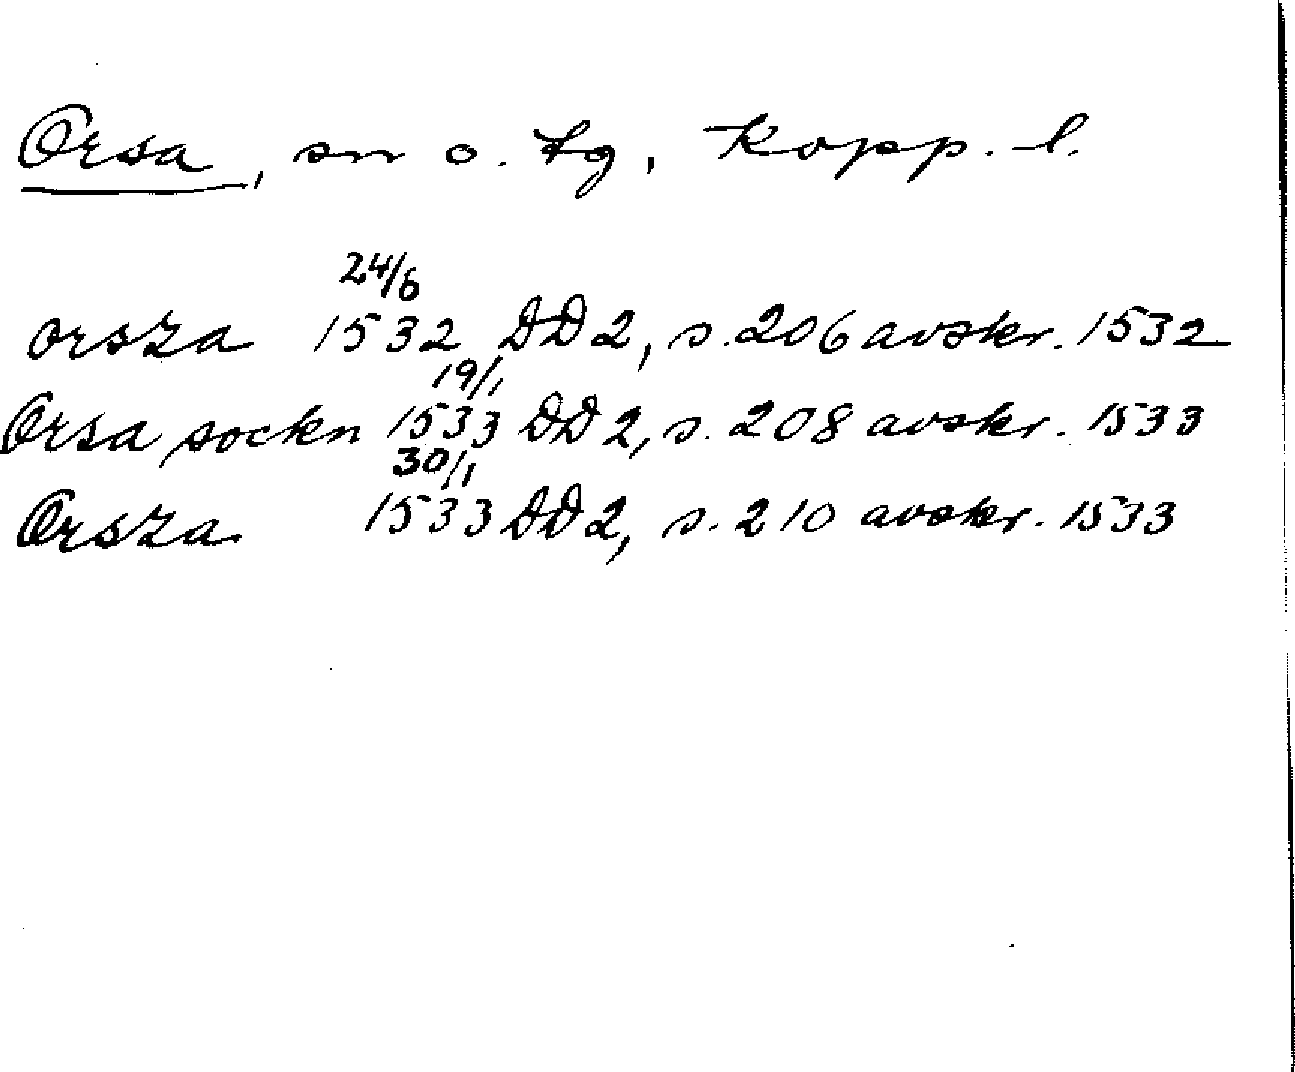 Orsa, sn o. tg, Kopp. l.
24/6
orsza 1532 DD2, s. 206 avskr. 1532
19/1
Orsa sockn 1533 DD2, s. 208 avskr. 1533
30/1
Orsza 1533 DD2, s. 210 avskr. 1533